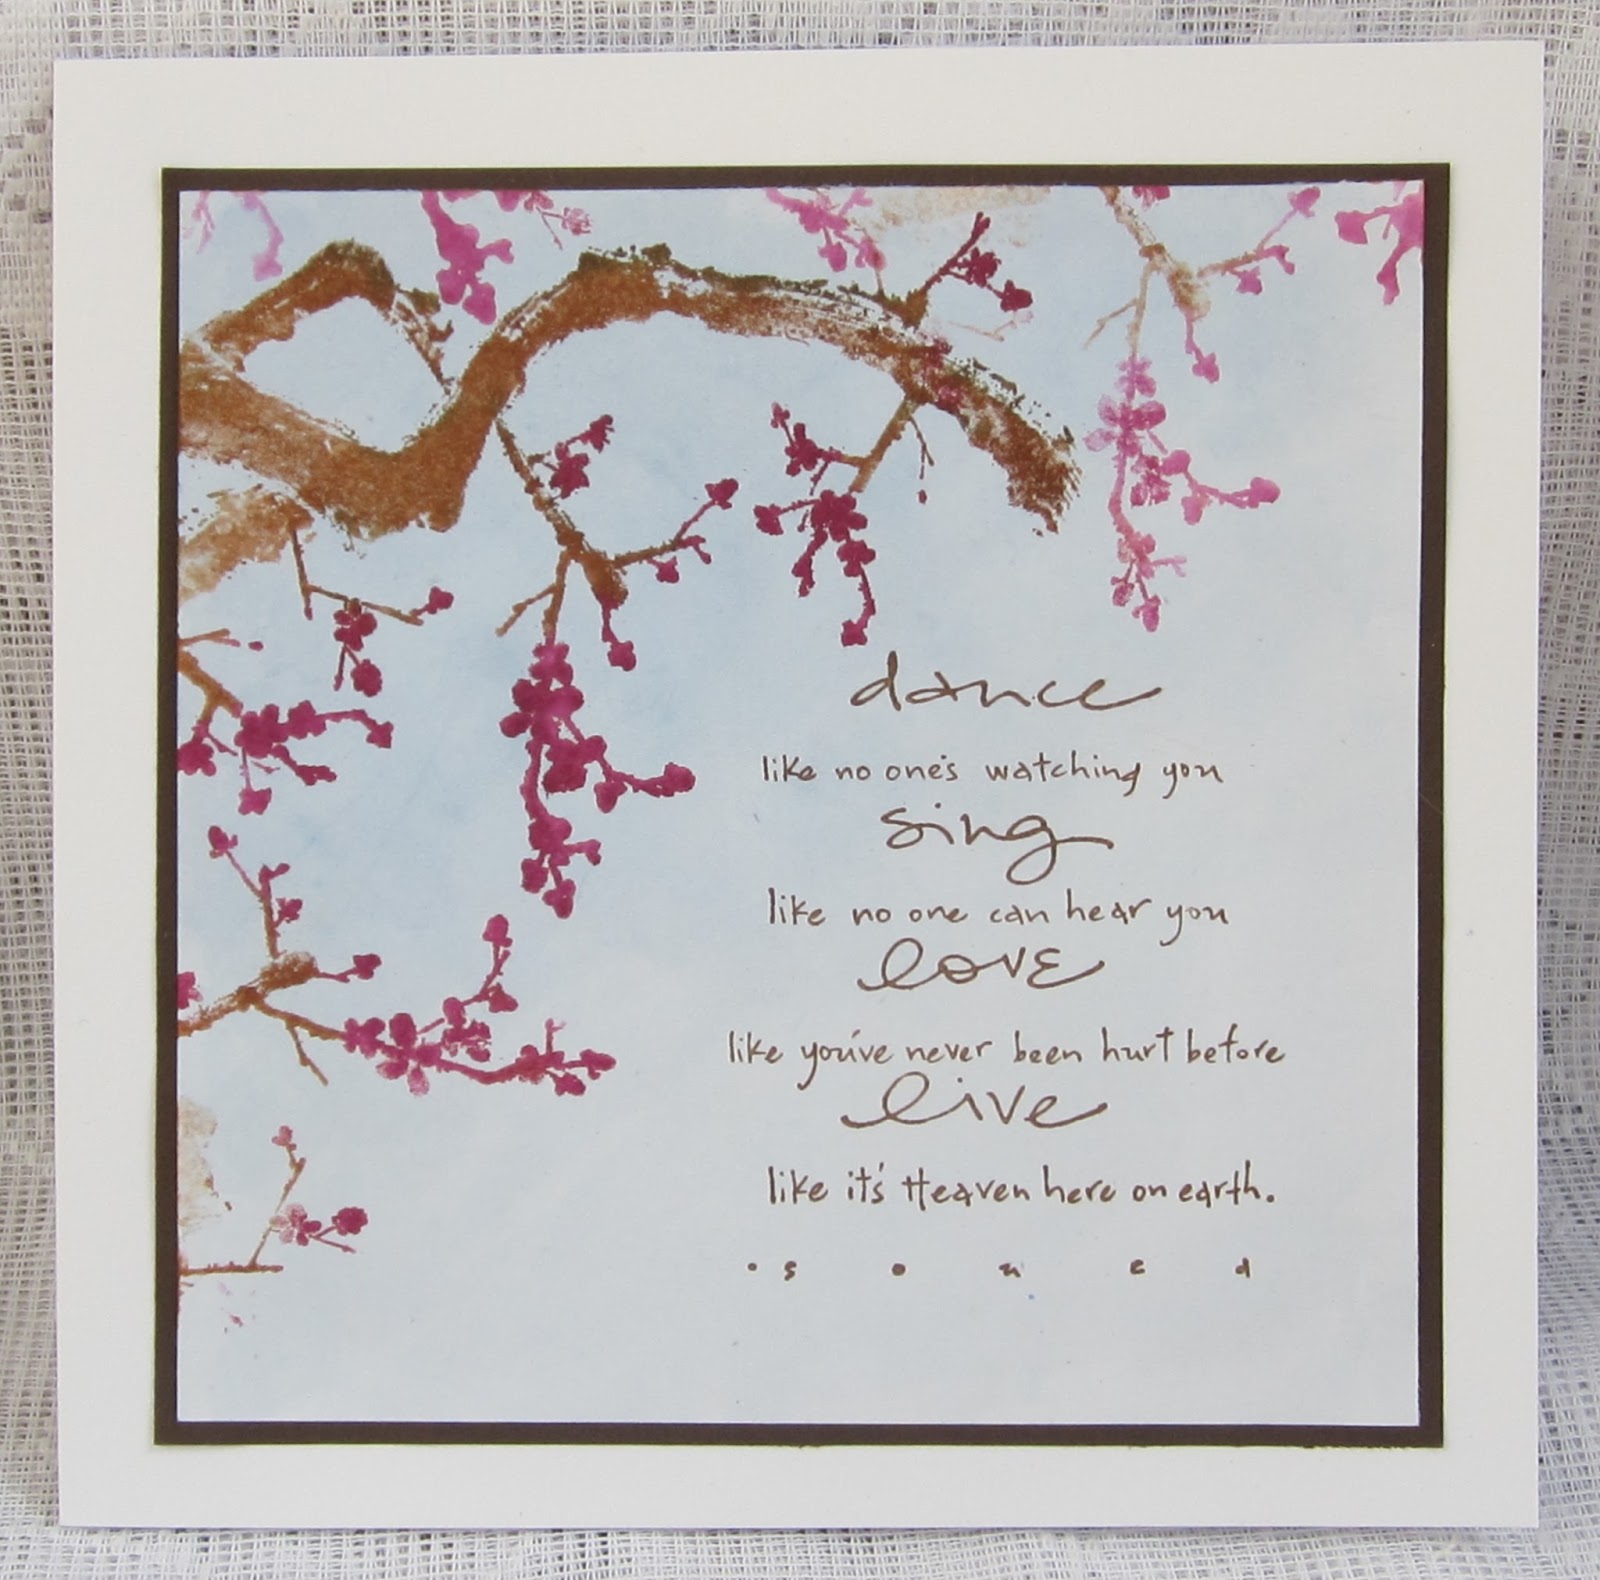 dance
like no one's watching you
sing
like no one can hear you
love
like you've never been hurt before
live
like it's Heaven here on earth.
• s o u z a